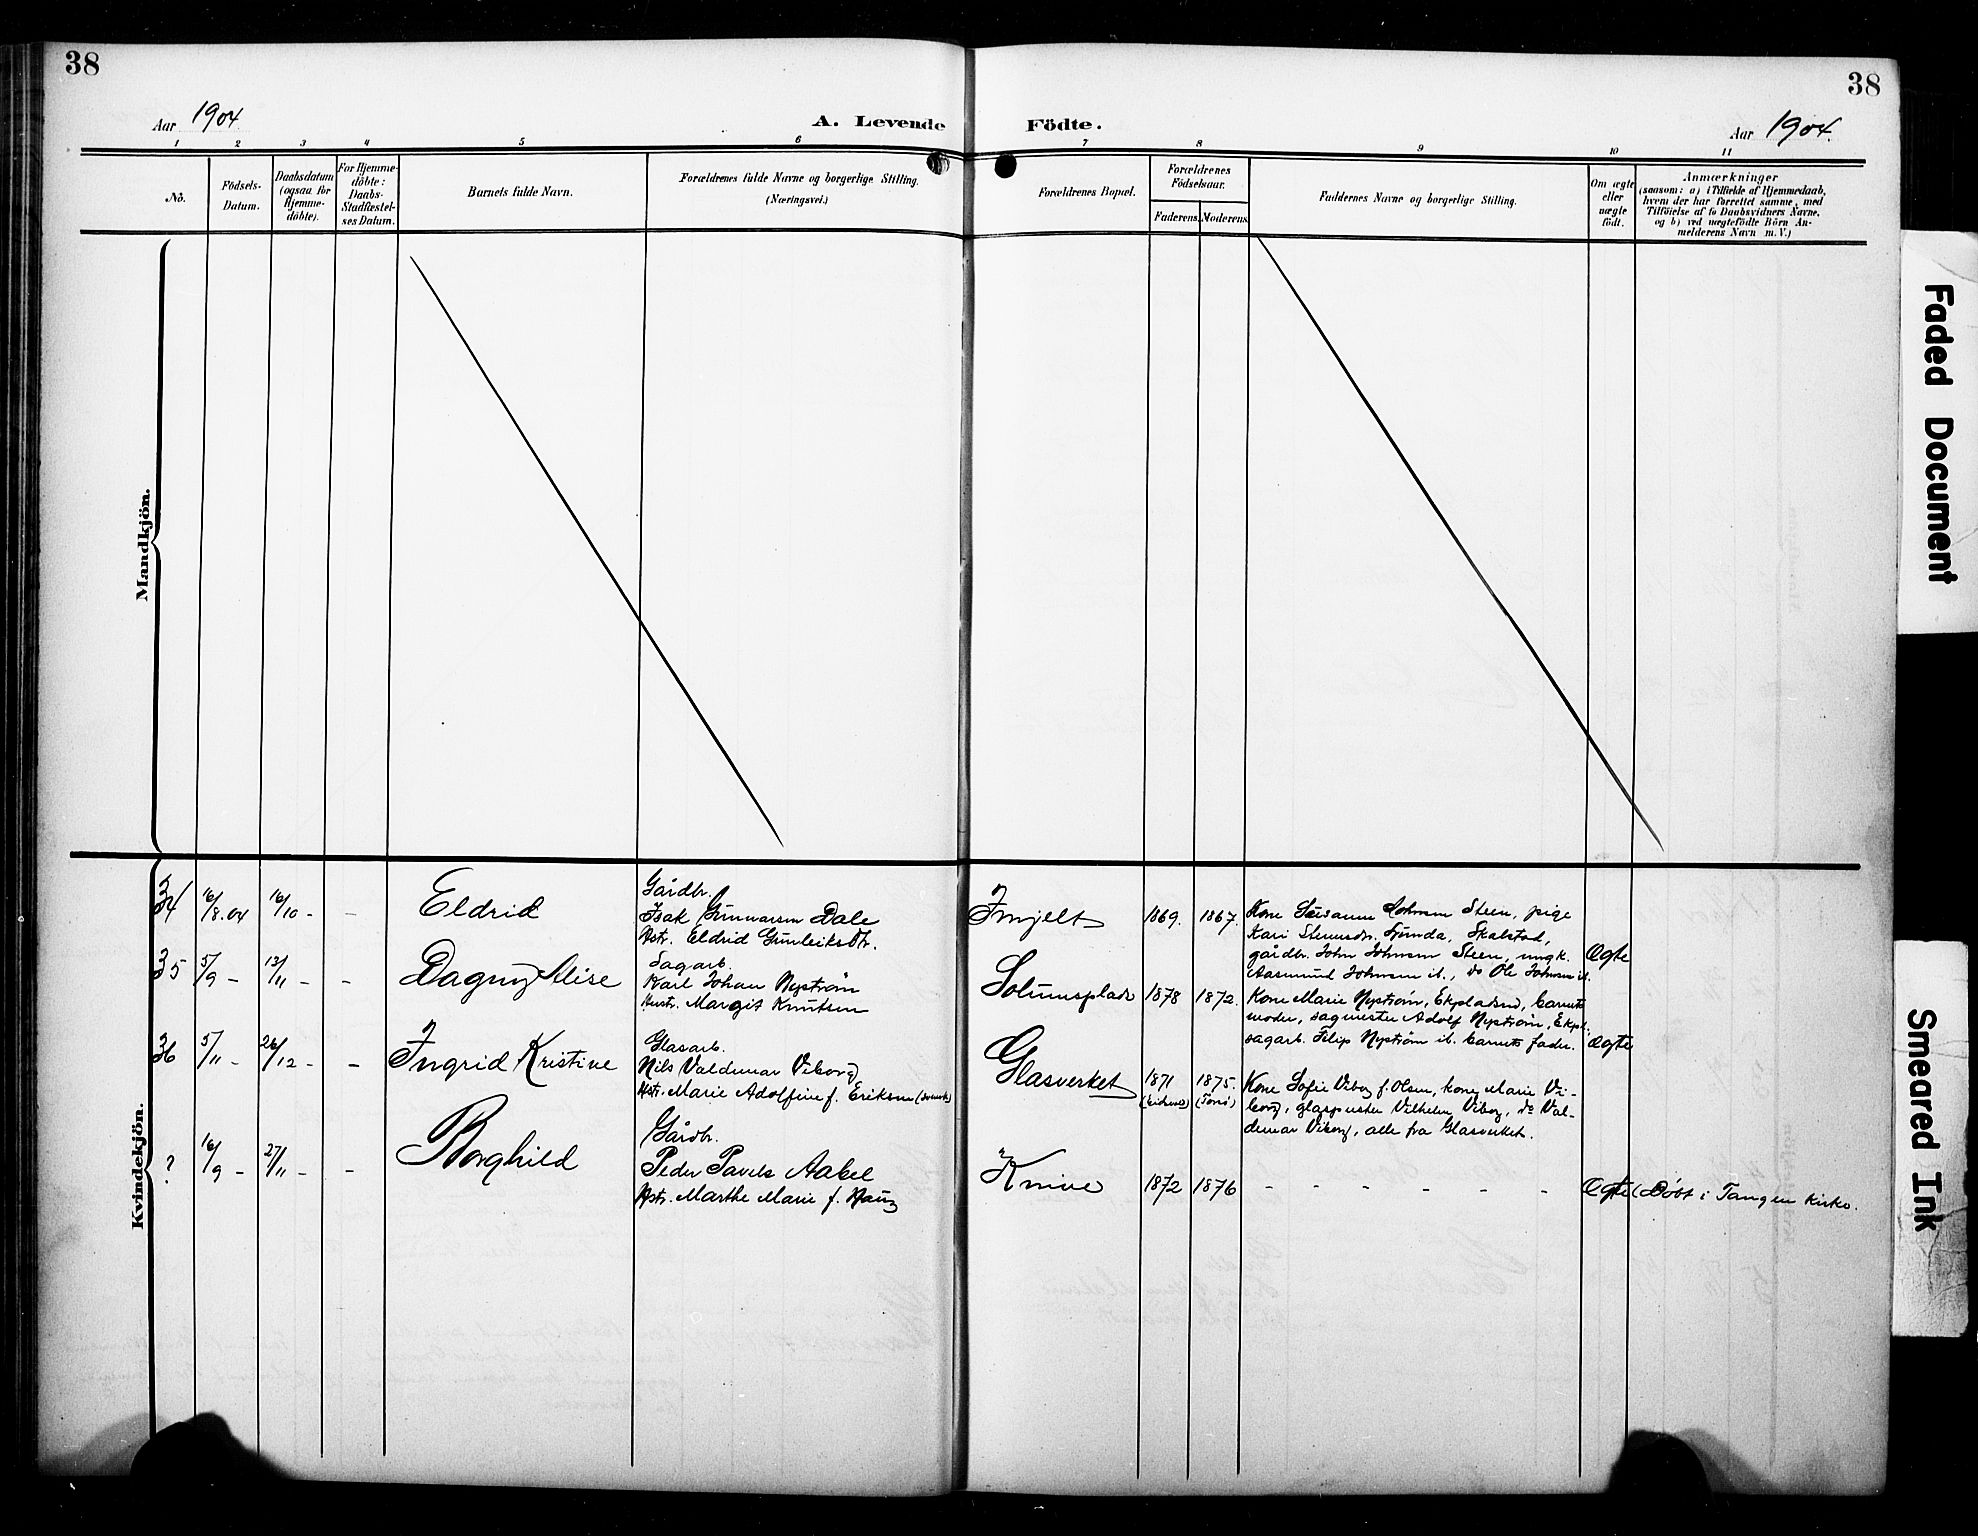 38
38
Aar 1904
A. Levende Födte.
Aar 1904.
1 2 3 4 5 6 7 8 9 10 11
No.
Födsels-
Datum.
Daabsdatum
(ogsaa for
Hjemme-
döbte).
For Hjemme-
döbte:
Daabs-
Stadfæstel-
ses Datum.
Barnets fulde Navn.
Forældrenes fulde Navne og borgerlige Stilling.
(Næringsvei.)
Forældrenes Bopæl.
Forældrenes
Födselsaar.
Faderens. Moderens.
Faddernes Navne og borgerlige Stilling.
Om ægte
eller
uægte
födt.
Anmærkninger
(saasom: a) i Tilfælde af Hjemmedaab,
hvem der har forrettet samme, med
Tilföielse af to Daabsvidners Navne,
og b) ved uægtefödte Börn An-
melderens Navn m. V.)
Mandkjön.
Kvindekjön.
34 16/8.04 16/10 - - Eldrid
Gårdbr.
Isak Gunnarsen Dale
Hstr. Eldrid Gunleiksdtr.
1869. 1867.
Kone Susanne Johnsen Steen, pige
Kari Skalstad,
gårdbr. John Johnsen Steen, ungk.
Aasmund Johnsen ib., do Ole Johnsen ib.
Ægte
35 5/9 - 13/11 - - Dagny Alise
Sagarb.
Karl Johan Nyström
Hustr. Margit Knutsen
Solumsplads 1878 1872.
Kone Marie Nyström, barnets
moder, sagmester Adolf Nyström,
sagarb. Filip Nyström ib. barnets fader.
Ægte
36 5/11 - 26/12 - - Ingrid Kristine
Glasarb.
Nils Valdemar Viborg
Hstr. Marie Adolfine f. Eriksen (svensk)
Glasverket 1871 1875.
Kone Sofie Viborg f. Olsen, kone Marie Vi-
borg, glaspuster Vilhelm Viborg, do Val-
demar Viborg, alle fra Glasverket.
? 16/9 - 27/11 - - Borghild
Gårdbr.
Peder Pavels Aabel
Hstr. Marthe Marie f. Haug
Knive 1872 1876 - - - - - - Ægte (Döbt i Tangen kirke.
Faded Document
Smeared Ink